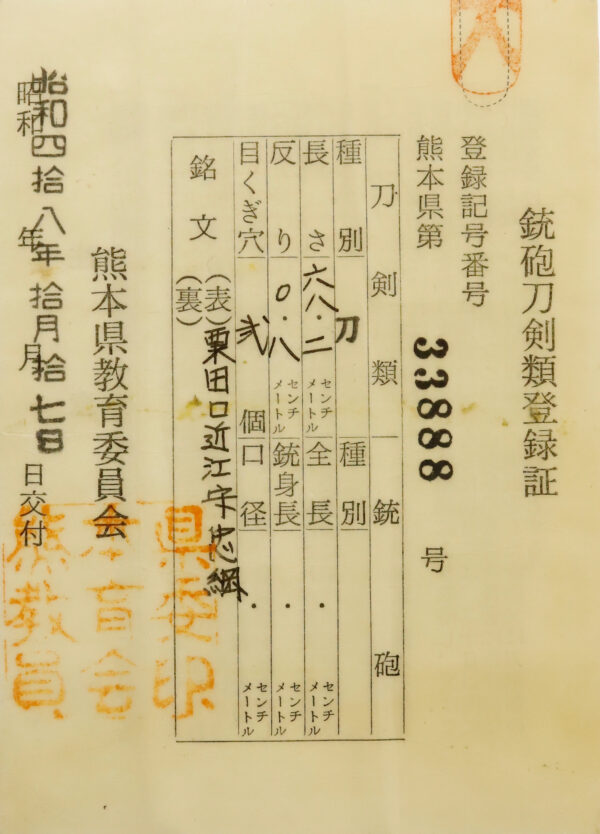 銃砲刀剣類登録証
登録記号番号
熊本県第 33888 号
刀剣類 銃砲
種別 刀 種別
長さ 六八・二 センチメートル 全長 ・ センチメートル
反り 〇・八 センチメートル 銃身長 ・ センチメートル
目くぎ穴 弐 個 口径 ・ センチメートル
銘文 (表) 粟田口近江守忠綱
(裏)
熊本県教育委員会
昭和四拾八年拾月拾七日
昭和 年 月 日交付
熊本県教育委員会印